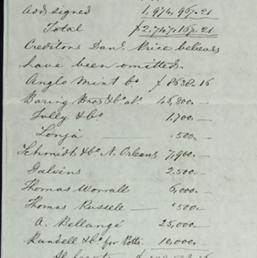 Add signed 1,974,997.21
Total $2,747,157.21
Creditors Danl. Price believes
have been omitted.
Anglo Mint Co $8638.16
Baring Bros & Co at 45,200.—
Jolly & Co 1,700.—
Lonja .500.—
Schmidt & Co N. Orleans 7,900.—
Galvins 2,500.—
Thomas Worrall 5,000.—
Thomas Russell — 500.—
A. Bellangé 25,000.—
Randell & Co for Potts 10,000.—